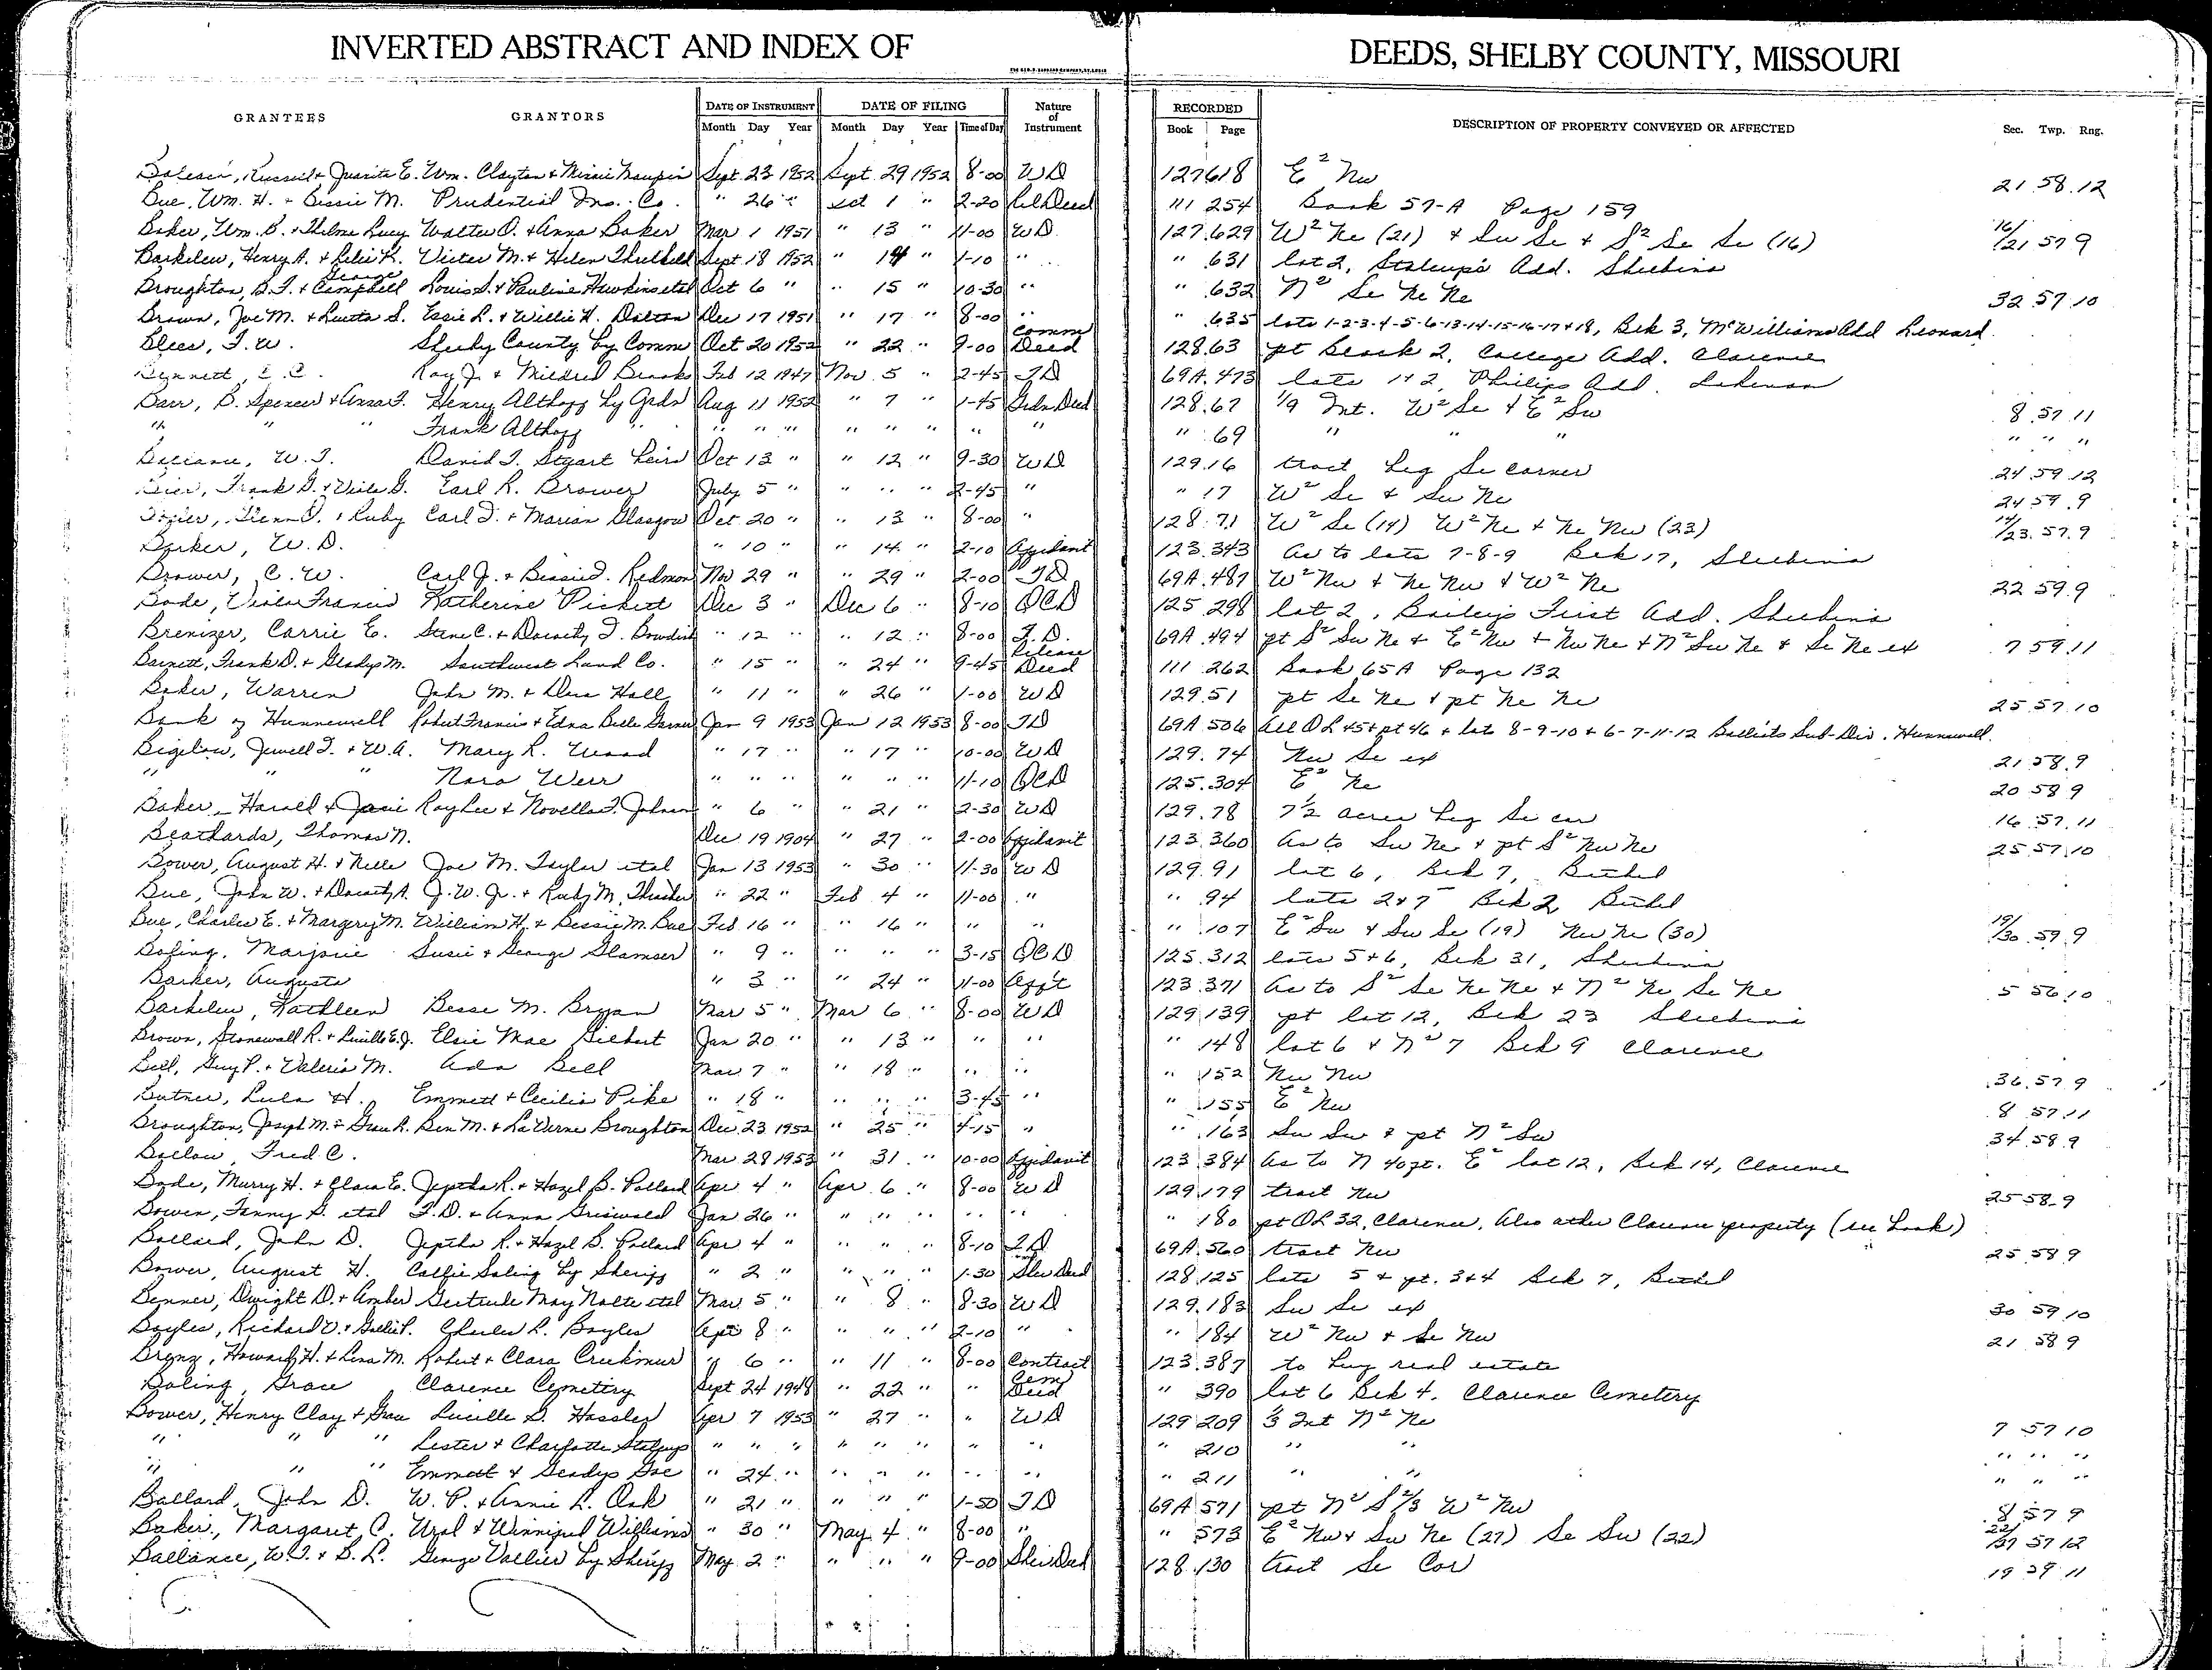 INVERTED ABSTRACT AND INDEX OF DEEDS, SHELBY COUNTY, MISSOURI
GRANTEES GRANTORS DATE OF INSTRUMENT DATE OF FILING Nature of Instrument RECORDED DESCRIPTION OF PROPERTY CONVEYED OR AFFECTED Sec. Twp. Rng.
Month Day Year Month Day Year Time of Day Book Page
Juanita E. Wm. Clayton & Minnie Maupin Sept. 23 1952 Sept. 29 1952 8-00 WD 127 618 E² Nw 21 58 12
Bue, Wm. H. & Bessie M. Prudential Ins. Co. " 26 " Oct 1 " 2-20 Rel Deed 111 254 Book 57-A Page 159
Baker, Wm. B. & Thelma Lucy Walter O. & Anna Baker Mar 1 1951 " 13 " 11-00 WD 127 629 W² Ne (21) & Sw Se & S² Se Se (16) 16/21 57 9
Barkelew, Henry A. & Lelia K. Victor M. & Helen Threlkeld Sept 18 1952 " 14 " 1-10 " " 631 lot 2, Stalcup's Add. Shelbina
Broughton, B.F. & George Campbell Louis S. & Pauline Hawkins etal Oct 6 " " 15 " 10-30 " " 632 N² Se Ne Ne 32 57 10
Brown, Joe M. & Lueta S. Essie L. & Willie H. Dalton Dec 17 1951 " 17 " 8-00 " " 635 lots 1-2-3-4-5-6-13-14-15-16-17 & 18, Blk 3, McWilliams Add Leonard
Blees, F. W. Shelby County by Comm Oct 20 1952 " 22 " 9-00 Comm Deed 128 63 pt Block 2, College Add. Clarence
Bennett, E. C. Ray J. & Mildred Brooks Feb 12 1947 Nov 5 " 2-45 TD 69A 473 lots 1 & 2, Phillips Add. Lakenan
Barr, B. Spencer & Anna F. Henry Althoff by Grdn Aug 11 1952 " 7 " 1-45 Grdn Deed 128 67 1/9 Int. W² Se & E² Sw 8 57 11
" " " Frank Althoff " " " " " " " " " " 69 " " " " " "
W. T. David T. Stuart heirs Oct 13 " " 12 " 9-30 WD 129 16 tract beg Se corner 24 59 12
Bier, Frank G. & Viola G. Earl R. Brower July 5 " " " " 2-45 " " 17 W² Se & Sw Ne 24 59 9
Glenn & Ruby Carl D. & Marian Glasgow Oct 20 " " 13 " 8-00 " 128 71 W² Se (14) W² Ne & Ne Nw (23) 14/23 57 9
Barker, W. D. " 10 " " 14 " 2-10 Affidavit 123 343 As to lots 7-8-9 Blk 17, Shelbina
Brower, C. W. Carl J. & Bessie D. Redmon Nov 29 " " 29 " 2-00 TD 69A 487 W² Nw & Ne Nw & W² Ne 22 59 9
Bode, Viola Francis Katherine Pickett Dec 3 " Dec 6 " 8-10 QCD 125 298 lot 2, Bailey's First Add. Shelbina
Brenizer, Carrie E. Steve C. & Dorothy F. Bowdish " 12 " " 12 " 8-00 T.D. 69A 494 pt S² Sw Ne & E² Nw & Nw Ne & N² Sw Ne & Se Ne ex 7 59 11
Barnett, Frank D. & Gladys M. Southwest Land Co. " 15 " " 24 " 9-45 Release Deed 111 262 Book 65A Page 132
Baker, Warren John M. & Dora Hall " 11 " " 26 " 1-00 WD 129 51 pt Se Ne & pt Ne Ne 25 57 10
Bank of Hunnewell Robert Francis & Edna Belle Garner Jan 9 1953 Jan 12 1953 8-00 TD 69A 506 All OL 45 & pt 46 & lots 8-9-10 & 6-7-11-12 Sub-Div. Hunnewell
Bigelow, Jewell F. & W.A. Mary R. Wood " 17 " " 17 " 10-00 WD 129 74 Nw Se ex 21 58 9
" " " Nora Weir " " " " " " 11-10 QCD 125 304 E² Ne 20 58 9
Baker, Harold & Janie Ray Lee & Novella F. Johnson " 6 " " 21 " 2-30 WD 129 78 7½ acres beg Se cor 16 57 11
Beathards, Thomas N. Dec 19 1904 " 27 " 2-00 Affidavit 123 360 As to Sw Ne & pt S² Nw Ne 25 57 10
Bower, August H. & Nelle Joe M. Taylor etal Jan 13 1953 " 30 " 11-30 WD 129 91 lot 6, Blk 7, Bethel
Bue, John W. & Dorothy A. J.W. Jr. & Ruby M. Thrasher " 22 " Feb 4 " 11-00 " " 94 lots 2 & 7 Blk 2 Bethel
Bue, Charles E. & Margery M. William H. & Bessie M. Bue Feb 16 " " 16 " " " " 107 E² Sw & Sw Se (19) Nw Ne (30) 19/30 59 9
Boling, Marjorie Susie & George Glamser " 9 " " " " 3-15 QCD 125 312 lots 5 & 6, Blk 31, Shelbina
Barker, Augusta " 3 " " 24 " 11-00 Aff't 123 371 As to S² Se Ne Ne & N² Ne Se Ne 5 56 10
Barkelew, Kathleen Besse M. Bryan Mar 5 " Mar 6 " 8-00 WD 129 139 pt lot 12, Blk 23 Shelbina
Brown, Stonewall R. & Lucille E.J. Elsie Mae Gilbert Jan 20 " " 13 " " " " 148 lot 6 & N² 7 Blk 9 Clarence
Bell, Guy P. & Valeria M. Ada Bell Mar 7 " " 18 " " " " 152 Nw Nw 36 57 9
Butner, Lula H. Emmett & Cecilia Pike " 18 " " " " 3-45 " " 155 E² Nw 8 57 11
Broughton, Joseph M. & Grace R. Ben M. & LaVerne Broughton Dec 23 1952 " 25 " 4-15 " " 163 Sw Sw & pt N² Sw 34 58 9
Ballow, Fred C. Mar 28 1953 " 31 " 10-00 Affidavit 123 384 As to N 40 ft. E² lot 12, Blk 14, Clarence
Bode, Murry H. & Clara E. Jeptha R. & Hazel B. Pollard Apr 4 " Apr 6 " 8-00 WD 129 179 tract Nw 25 58 9
Bowen, Fanny G. etal F.D. & Anna Griswold Jan 26 " " " " " " " 180 pt OL 32, Clarence, Also other Clarence property (see book)
Ballard, John D. Jeptha R. & Hazel B. Pollard Apr 4 " " " " 8-10 TD 69A 560 tract Nw 25 58 9
Bower, August H. Callie Saling by Sheriff " 2 " " " " 1-30 Sher Deed 128 125 lots 5 & pt. 3 & 4 Blk 7, Bethel
Benner, Dwight D. & Amber Gertrude May Nolte etal Mar 5 " " 8 " 8-30 WD 129 183 Sw Se ex 30 59 10
Bayles, Richard O. & Gallie P. Charles L. Bayles Apr 8 " " " " 2-10 " " 184 W² Nw & Se Nw 21 58 9
Howard H. & Lena M. Robert & Clara Creekmur " 6 " " 11 " 8-00 Contract 123 387 to buy real estate
Boling, Grace Clarence Cemetery Sept 24 1948 " 22 " " Cem Deed " 390 lot 6 Blk 4. Clarence Cemetery
Bower, Henry Clay & Grace Lucille B. Hassler Apr 7 1953 " 27 " " WD 129 209 ⅓ Int N² Ne 7 57 10
" " " Lester & Charlotte Stalcup " " " " " " " " " 210 " " " " "
" " " Emmett & Gladys Goe " 24 " " " " " " " 211 " " " " "
Ballard, John D. W. P. & Annie L. Oak " 21 " " " " 1-50 TD 69A 571 pt N² S⅔ W² Nw 8 57 9
Baker, Margaret C. Ural & Winnifred Williams " 30 " May 4 " 8-00 " " 573 E² Nw & Sw Ne (27) Se Sw (22) 22/27 57 12
Ballance, W.T. & B.L. George Vallier by Sheriff May 2 " " " " 9-00 Sher Deed 128 130 tract Se Cor